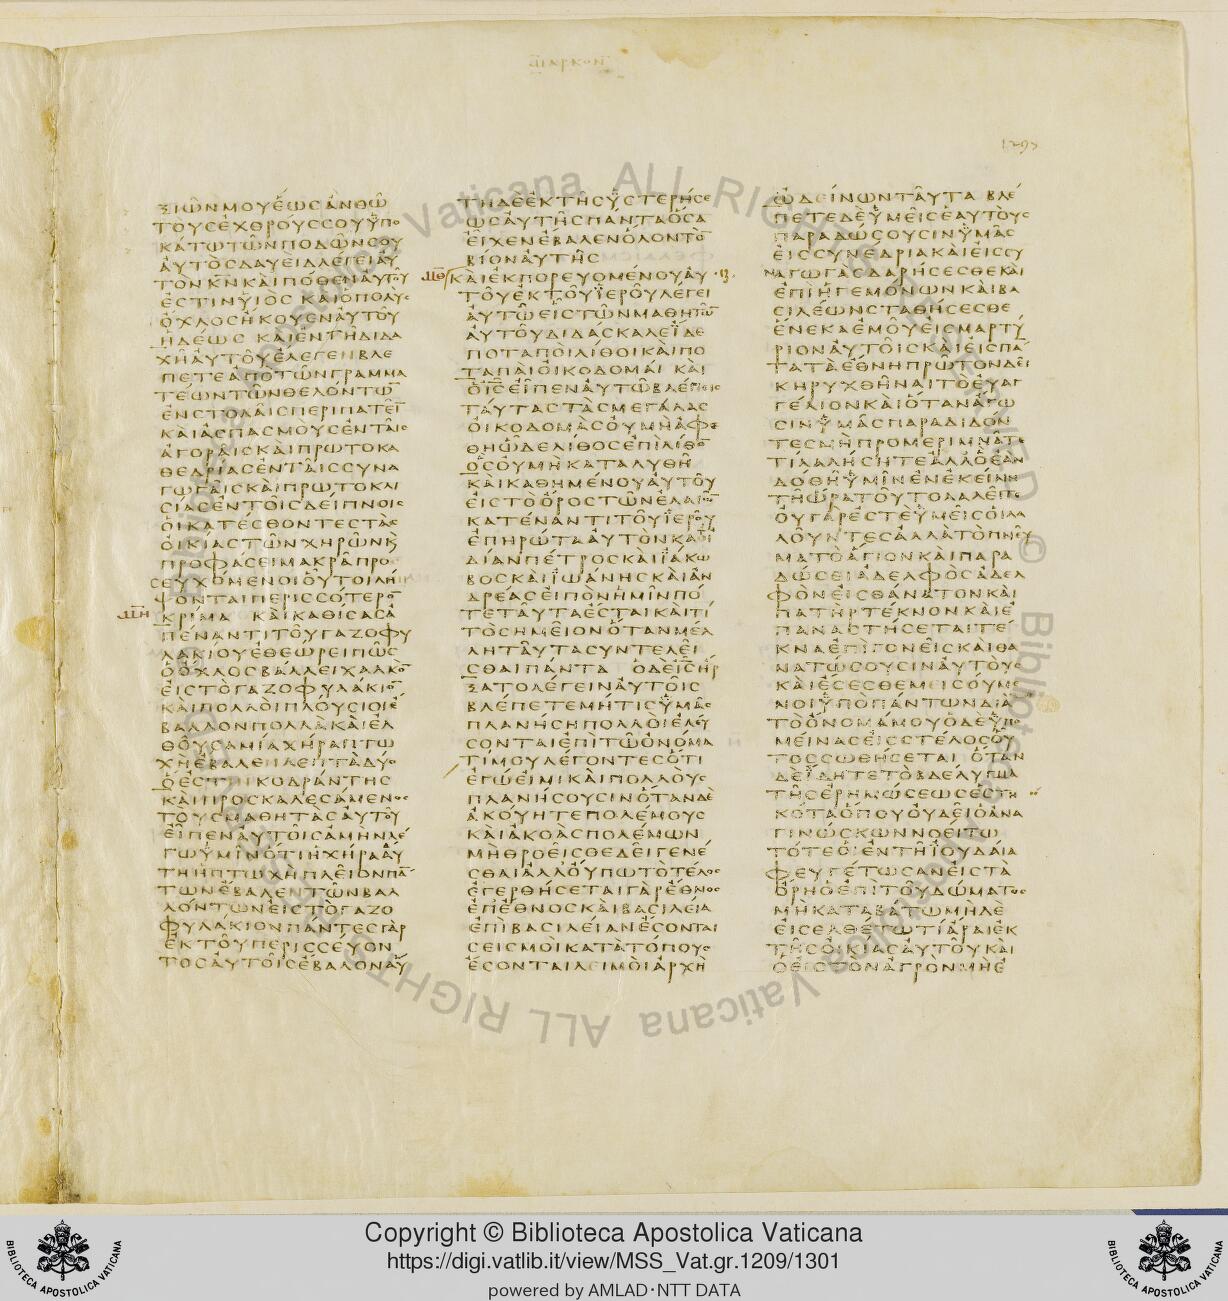 ΜΑΡΚΟΝ
1298
ΞΙΩΝΜΟΥΕΩϹΑΝΘΩ
ΤΟΥϹΕΧΘΡΟΥϹϹΟΥΥΠΟ
ΚΑΤΩΤΩΝΠΟΔΩΝϹΟΥ
ΑΥΤΟϹΔΑΥΕΙΔΛΕΓΕΙΑΥ
ΤΟΝΚΝΚΑΙΠΟΘΕΝΑΥΤΟΥ
ΕϹΤΙΝΥΙΟϹ ΚΑΙΟΠΟΛΥϹ
ΟΧΛΟϹΗΚΟΥΕΝΑΥΤΟΥ
ΗΔΕΩϹ ΚΑΙΕΝΤΗΔΙΔΑ
ΧΗΑΥΤΟΥΕΛΕΓΕΝΒΛΕ
ΠΕΤΕΑΠΟΤΩΝΓΡΑΜΜΑ
ΤΕΩΝΤΩΝΘΕΛΟΝΤΩ
ΕΝϹΤΟΛΑΙϹΠΕΡΙΠΑΤΕΙ
ΚΑΙΑϹΠΑϹΜΟΥϹΕΝΤΑΙϹ
ΑΓΟΡΑΙϹΚΑΙΠΡΩΤΟΚΑ
ΘΕΔΡΙΑϹΕΝΤΑΙϹϹΥΝΑ
ΓΩΓΑΙϹΚΑΙΠΡΩΤΟΚΛΙ
ϹΙΑϹΕΝΤΟΙϹΔΕΙΠΝΟΙϹ
ΟΙΚΑΤΕϹΘΟΝΤΕϹΤΑϹ
ΟΙΚΙΑϹΤΩΝΧΗΡΩΝΚ
ΠΡΟΦΑϹΕΙΜΑΚΡΑΠΡΟ
ϹΕΥΧΟΜΕΝΟΙΟΥΤΟΙΛΗΜ
ΨΟΝΤΑΙΠΕΡΙϹϹΟΤΕΡΟ
ΜΗ ΚΡΙΜΑ ΚΑΙΚΑΘΙϹΑϹΑ
ΠΕΝΑΝΤΙΤΟΥΓΑΖΟΦΥ
ΛΑΚΙΟΥΕΘΕΩΡΕΙΠΩϹ
ΟΟΧΛΟϹΒΑΛΛΕΙΧΑΛΚΟ
ΕΙϹΤΟΓΑΖΟΦΥΛΑΚΙΟ
ΚΑΙΠΟΛΛΟΙΠΛΟΥϹΙΟΙΕ
ΒΑΛΛΟΝΠΟΛΛΑΚΑΙΕΛ
ΘΟΥϹΑΜΙΑΧΗΡΑΠΤΩ
ΧΗΕΒΑΛΕΝΛΕΠΤΑΔΥΟ
ΟΕϹΤΙΝΚΟΔΡΑΝΤΗϹ
ΚΑΙΠΡΟϹΚΑΛΕϹΑΜΕΝΟϹ
ΤΟΥϹΜΑΘΗΤΑϹΑΥΤΟΥ
ΕΙΠΕΝΑΥΤΟΙϹΑΜΗΝΛΕ
ΓΩΥΜΙΝΟΤΙΗΧΗΡΑΑΥ
ΤΗΗΠΤΩΧΗΠΛΕΙΟΝΠΑ
ΤΩΝΕΒΑΛΕΝΤΩΝΒΑΛ
ΛΟΝΤΩΝΕΙϹΤΟΓΑΖΟ
ΦΥΛΑΚΙΟΝΠΑΝΤΕϹΓΑΡ
ΕΚΤΟΥΠΕΡΙϹϹΕΥΟΝ
ΤΟϹΑΥΤΟΙϹΕΒΑΛΟΝΑΥ
ΤΗΔΕΕΚΤΗϹΥϹΤΕΡΗϹΕ
ΩϹΑΥΤΗϹΠΑΝΤΑΟϹΑ
ΕΙΧΕΝΕΒΑΛΕΝΟΛΟΝΤΟ
ΒΙΟΝΑΥΤΗϹ
ΜΘ ΚΑΙΕΚΠΟΡΕΥΟΜΕΝΟΥΑΥ
ΤΟΥΕΚΤΟΥΙΕΡΟΥΛΕΓΕΙ
ΑΥΤΩΕΙϹΤΩΝΜΑΘΗΤΩ
ΑΥΤΟΥΔΙΔΑϹΚΑΛΕΙΔΕ
ΠΟΤΑΠΟΙΛΙΘΟΙΚΑΙΠΟ
ΤΑΠΑΙΟΙΚΟΔΟΜΑΙ ΚΑΙ
ΟΙϹΕΙΠΕΝΑΥΤΩΒΛΕΠΕΙϹ
ΤΑΥΤΑϹΤΑϹΜΕΓΑΛΑϹ
ΟΙΚΟΔΟΜΑϹΟΥΜΗΑΦΕ
ΘΗΩΔΕΛΙΘΟϹΕΠΙΛΙΘΟ
ΟϹΟΥΜΗΚΑΤΑΛΥΘΗ
ΚΑΙΚΑΘΗΜΕΝΟΥΑΥΤΟΥ
ΕΙϹΤΟΟΡΟϹΤΩΝΕΛΑΙΩ
ΚΑΤΕΝΑΝΤΙΤΟΥΙΕΡΟΥ
ΕΠΗΡΩΤΑΑΥΤΟΝΚΑΤΙ
ΔΙΑΝΠΕΤΡΟϹΚΑΙΙΑΚΩ
ΒΟϹΚΑΙΙΩΑΝΗϹΚΑΙΑΝ
ΔΡΕΑϹΕΙΠΟΝΗΜΙΝΠΟ
ΤΕΤΑΥΤΑΕϹΤΑΙΚΑΙΤΙ
ΤΟϹΗΜΕΙΟΝΟΤΑΝΜΕΛ
ΛΗΤΑΥΤΑϹΥΝΤΕΛΕΙ
ϹΘΑΙΠΑΝΤΑ ΟΔΕΙϹΗΡ
ΞΑΤΟΛΕΓΕΙΝΑΥΤΟΙϹ
ΒΛΕΠΕΤΕΜΗΤΙϹΥΜΑϹ
ΠΛΑΝΗϹΗΠΟΛΛΟΙΕΛΕΥ
ϹΟΝΤΑΙΕΠΙΤΩΟΝΟΜΑ
ΤΙΜΟΥΛΕΓΟΝΤΕϹΟΤΙ
ΕΓΩΕΙΜΙΚΑΙΠΟΛΛΟΥϹ
ΠΛΑΝΗϹΟΥϹΙΝΟΤΑΝΔΕ
ΑΚΟΥΗΤΕΠΟΛΕΜΟΥϹ
ΚΑΙΑΚΟΑϹΠΟΛΕΜΩΝ
ΜΗΘΡΟΕΙϹΘΕΔΕΙΓΕΝΕ
ϹΘΑΙΑΛΛΟΥΠΩΤΟΤΕΛΟϹ
ΕΓΕΡΘΗϹΕΤΑΙΓΑΡΕΘΝΟϹ
ΕΠΕΘΝΟϹΚΑΙΒΑϹΙΛΕΙΑ
ΕΠΙΒΑϹΙΛΕΙΑΝΕϹΟΝΤΑΙ
ϹΕΙϹΜΟΙΚΑΤΑΤΟΠΟΥϹ
ΕϹΟΝΤΑΙΛΕΙΜΟΙΑΡΧΗ
ΩΔΕΙΝΩΝΤΑΥΤΑ ΒΛΕ
ΠΕΤΕΔΕΥΜΕΙϹΕΑΥΤΟΥϹ
ΠΑΡΑΔΩϹΟΥϹΙΝΥΜΑϹ
ΕΙϹϹΥΝΕΔΡΙΑΚΑΙΕΙϹϹΥ
ΝΑΓΩΓΑϹΔΑΡΗϹΕϹΘΕΚΑΙ
ΕΠΙΗΓΕΜΟΝΩΝΚΑΙΒΑ
ϹΙΛΕΩΝϹΤΑΘΗϹΕϹΘΕ
ΕΝΕΚΑΕΜΟΥΕΙϹΜΑΡΤΥ
ΡΙΟΝΑΥΤΟΙϹΚΑΙΕΙϹΠΑ
ΤΑΤΑΕΘΝΗΠΡΩΤΟΝΔΕΙ
ΚΗΡΥΧΘΗΝΑΙΤΟΕΥΑΓ
ΓΕΛΙΟΝΚΑΙΟΤΑΝΑΓΩ
ϹΙΝΥΜΑϹΠΑΡΑΔΙΔΟΝ
ΤΕϹΜΗΠΡΟΜΕΡΙΜΝΑΤΕ
ΤΙΛΑΛΗϹΗΤΕΑΛΛΟΕΑΝ
ΔΟΘΗΥΜΙΝΕΝΕΚΕΙΝΗ
ΤΗΩΡΑΤΟΥΤΟΛΑΛΕΙΤΕ
ΟΥΓΑΡΕϹΤΕΥΜΕΙϹΟΙΛΑ
ΛΟΥΝΤΕϹΑΛΛΑΤΟΠΝΕΥ
ΜΑΤΟΑΓΙΟΝΚΑΙΠΑΡΑ
ΔΩϹΕΙΑΔΕΛΦΟϹΑΔΕΛ
ΦΟΝΕΙϹΘΑΝΑΤΟΝΚΑΙ
ΠΑΤΗΡΤΕΚΝΟΝΚΑΙΕ
ΠΑΝΑϹΤΗϹΕΤΑΙΤΕ
ΚΝΑΕΠΙΓΟΝΕΙϹΚΑΙΘΑ
ΝΑΤΩϹΟΥϹΙΝΑΥΤΟΥϹ
ΚΑΙΕϹΕϹΘΕΜΕΙϹΟΥΜΕ
ΝΟΙΥΠΟΠΑΝΤΩΝΔΙΑ
ΤΟΟΝΟΜΑΜΟΥΟΔΕΥΠΟ
ΜΕΙΝΑϹΕΙϹϹΤΕΛΟϹΟΥ
ΤΟϹϹΩΘΗϹΕΤΑΙ ΟΤΑΝ
ΔΕΙΔΗΤΕΤΟΒΔΕΛΥΓΜΑ
ΤΗϹΕΡΗΜΩϹΕΩϹΕϹΤΗ
ΚΟΤΑΟΠΟΥΟΥΔΕΙΟΑΝΑ
ΓΙΝΩϹΚΩΝΝΟΕΙΤΩ
ΤΟΤΕΟΙΕΝΤΗΙΟΥΔΑΙΑ
ΦΕΥΓΕΤΩϹΑΝΕΙϹΤΑ
ΟΡΗΟΕΠΙΤΟΥΔΩΜΑΤΟϹ
ΜΗΚΑΤΑΒΑΤΩΜΗΔΕ
ΕΙϹΕΛΘΕΤΩΤΙΑΡΑΙΕΚ
ΤΗϹΟΙΚΙΑϹΑΥΤΟΥΚΑΙ
ΟΕΙϹΤΟΝΑΓΡΟΝΜΗΕ
Biblioteca Apostolica Vaticana ALL RIGHTS RESERVED ©
Biblioteca Apostolica Vaticana ALL RIGHTS
BIBLIOTECA APOSTOLICA VATICANA
Copyright © Biblioteca Apostolica Vaticana
https://digi.vatlib.it/view/MSS_Vat.gr.1209/1301
powered by AMLAD·NTT DATA
BIBLIOTECA APOSTOLICA VATICANA